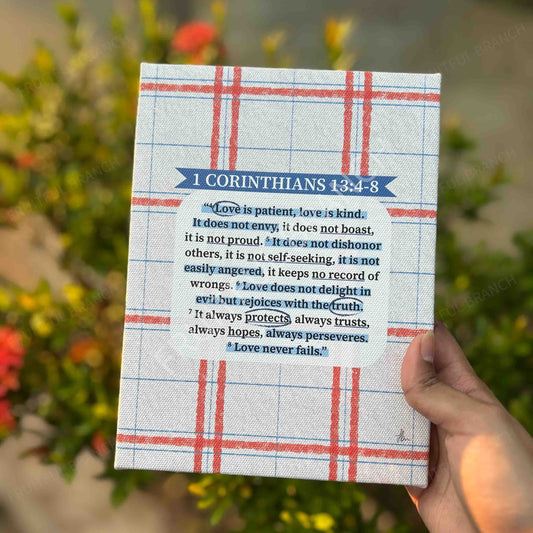 1 CORINTHIANS 13:4-8
"⁴Love is patient, love is kind.
It does not envy, it does not boast,
it is not proud. ⁵ It does not dishonor
others, it is not self-seeking, it is not
easily angered, it keeps no record of
wrongs. ⁶ Love does not delight in
evil but rejoices with the truth.
⁷ It always protects, always trusts,
always hopes, always perseveres.
⁸ Love never fails."